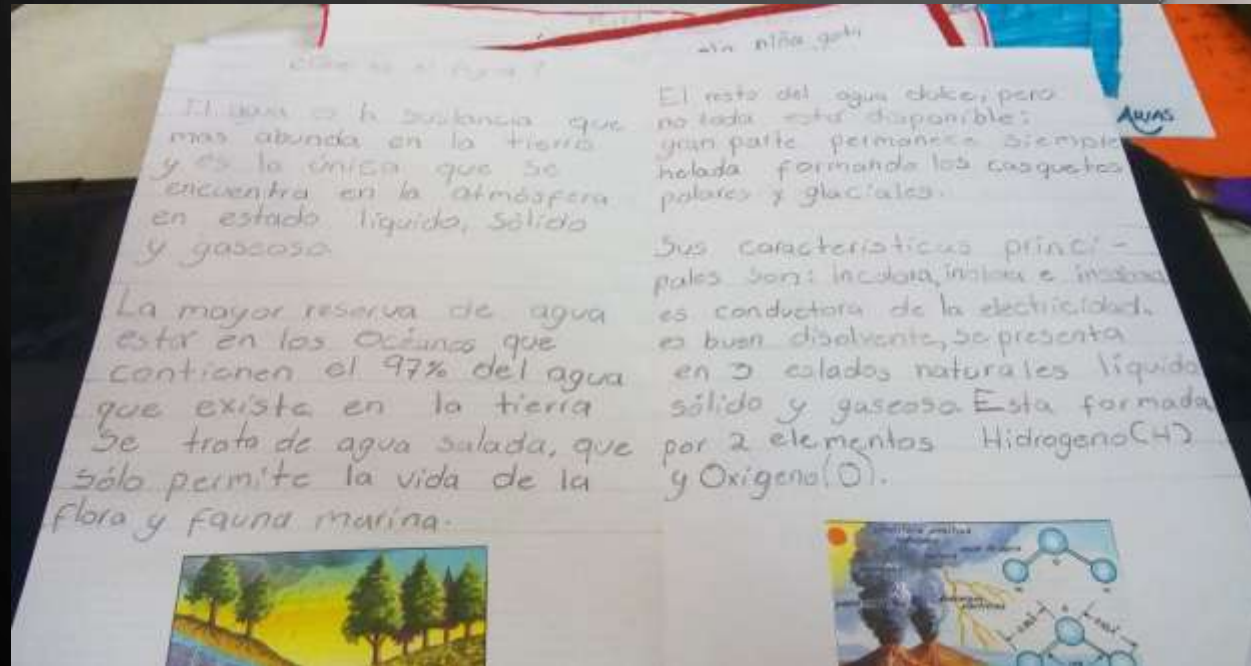 niña
ARIAS
El agua es la sustancia que
mas abunda en la tierra
y es la única que se
encuentra en la atmósfera
en estado líquido, sólido
y gaseoso
La mayor reserva de agua
está en los Océanos que
contienen el 97% del agua
que existe en la tierra
Se trata de agua salada, que
sólo permite la vida de la
flora y fauna marina.
El resto del agua dulce, pero
no toda está disponible:
gran parte permanece siempre
helada formando los casquetes
polares y glaciales.
Sus características princi-
pales son: incolora, e
es conductora de la electricidad.
es buen disolvente, se presenta
en 3 naturales líquido
sólido y gaseoso. Esta formada
por 2 elementos Hidrogeno(H)
y Oxigeno(O).